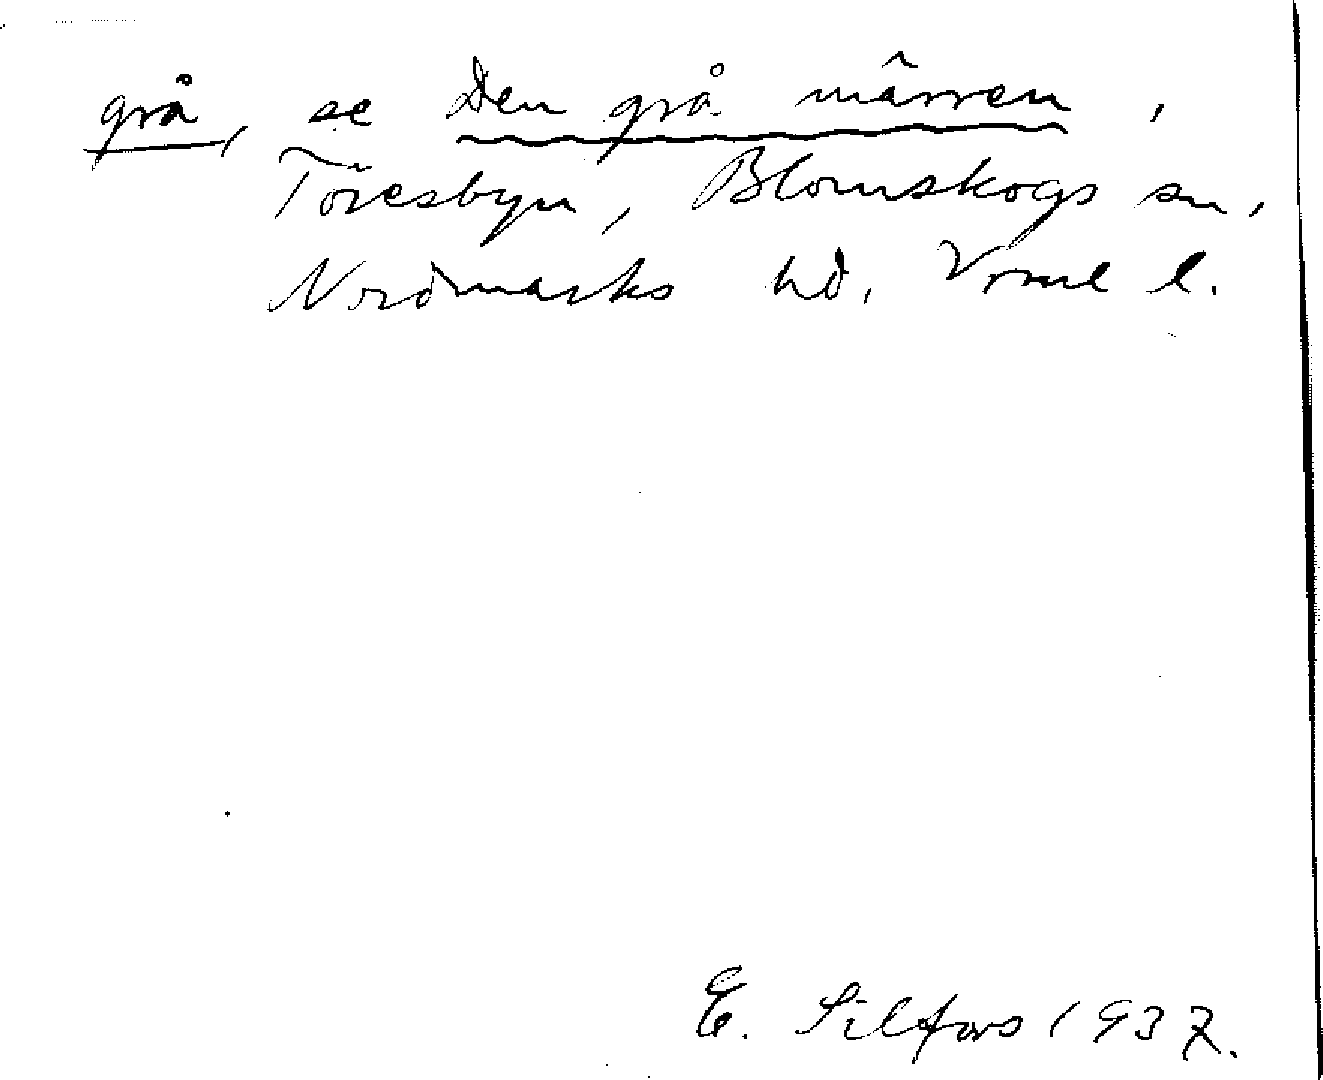 grå, se Den grå märren,
Töresbyn, Blomskogs sn,
Nordmarks hd, Vrml l.
E. Silfors 1937.